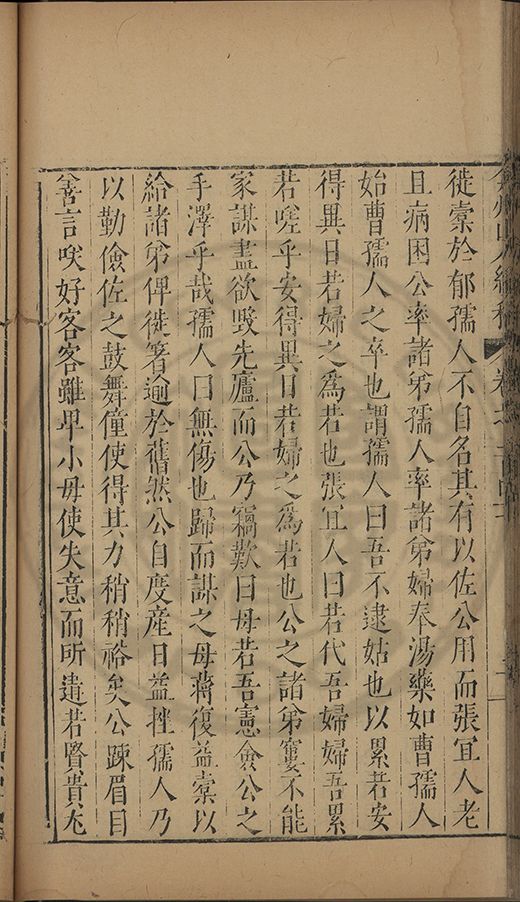 徙橐於郁孺人不自名其有以佐公用而張宜人老
且病困公率諸弟孺人率諸弟婦奉湯藥如曹孺人
始曹孺人之卒也謂孺人曰吾不逮姑也以累若安
得異日若婦之為若也張宜人曰若代吾婦婦吾累
若嗟乎安得異日若婦之為若也公之諸弟窶不能
家謀盡欲毀先廬而公乃竊歎曰毋若吾憲僉公之
手澤乎哉孺人曰無傷也歸而謀之母蔣復益橐以
給諸弟俾徙著逾於舊然公自度產日益挫孺人乃
以勤儉佐之鼓舞僮使得其力稍稍裕矣公踈眉目
善言咲好客客雖卑小毋使失意而所遺若賢貴尤